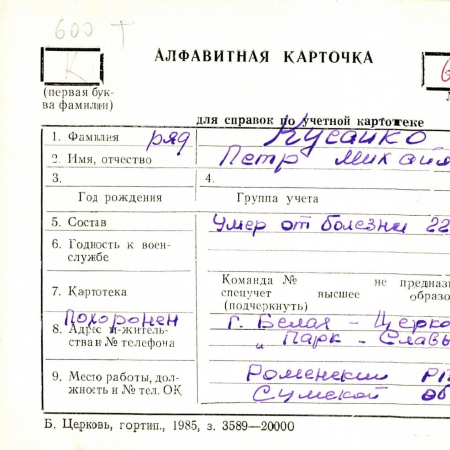 600 Т
К
АЛФАВИТНАЯ КАРТОЧКА
(первая бук-
ва фамилии)
для справок по учетной картотеке
1. Фамилия ряд Кусайко
2. Имя, отчество Петр Михай
3. 4.
Год рождения Группа учета
5. Состав Умер от болезни 22
6. Годность к воен-
службе
Команда № не предназ
7. Картотека спецучет высшее образо
(подчеркнуть)
Похоронен г. Белая - Церко
8. Адрес и житель-
ства и № телефона " Парк - Славы
9. Место работы, дол- Роменский Р
жность и № тел. ОК Сумской об
Б. Церковь, гортип., 1985, з. 3589—20000